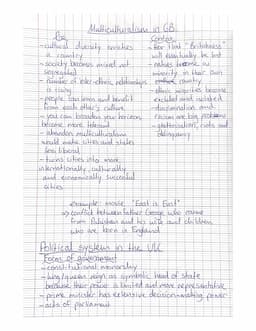 Multiculturalism in GB
Pro
- cultural diversity enriches
a country
- society becomes mixed not
segregated
- number of inter-ethnic relationships
is rising
- people can learn and benefit
from each other's culture
- you can broaden your horizon,
become more tolerant
- abandon multiculturalism
would make cities and states
less liberal
- turns cities into more
internationally, culturally
and economically successful
cities
Contra
- fear that "Britishness"
will eventually be lost
- natives become a
minority in their own
country
- ethnic minorities become
excluded and isolated
- discrimination and
racism are big problems
- ghettoisation, riots and
delinquency
example: movie "East is East"
conflict between father George, who came
from Pakistan and his wife and children
who are born in England
Political system in the UK
Form of government
- constitutional monarchy
- king/queen reign as symbolic head of state
because their power is limited and more representative
- prime minister has extensive decision-making power
- acts of parliament